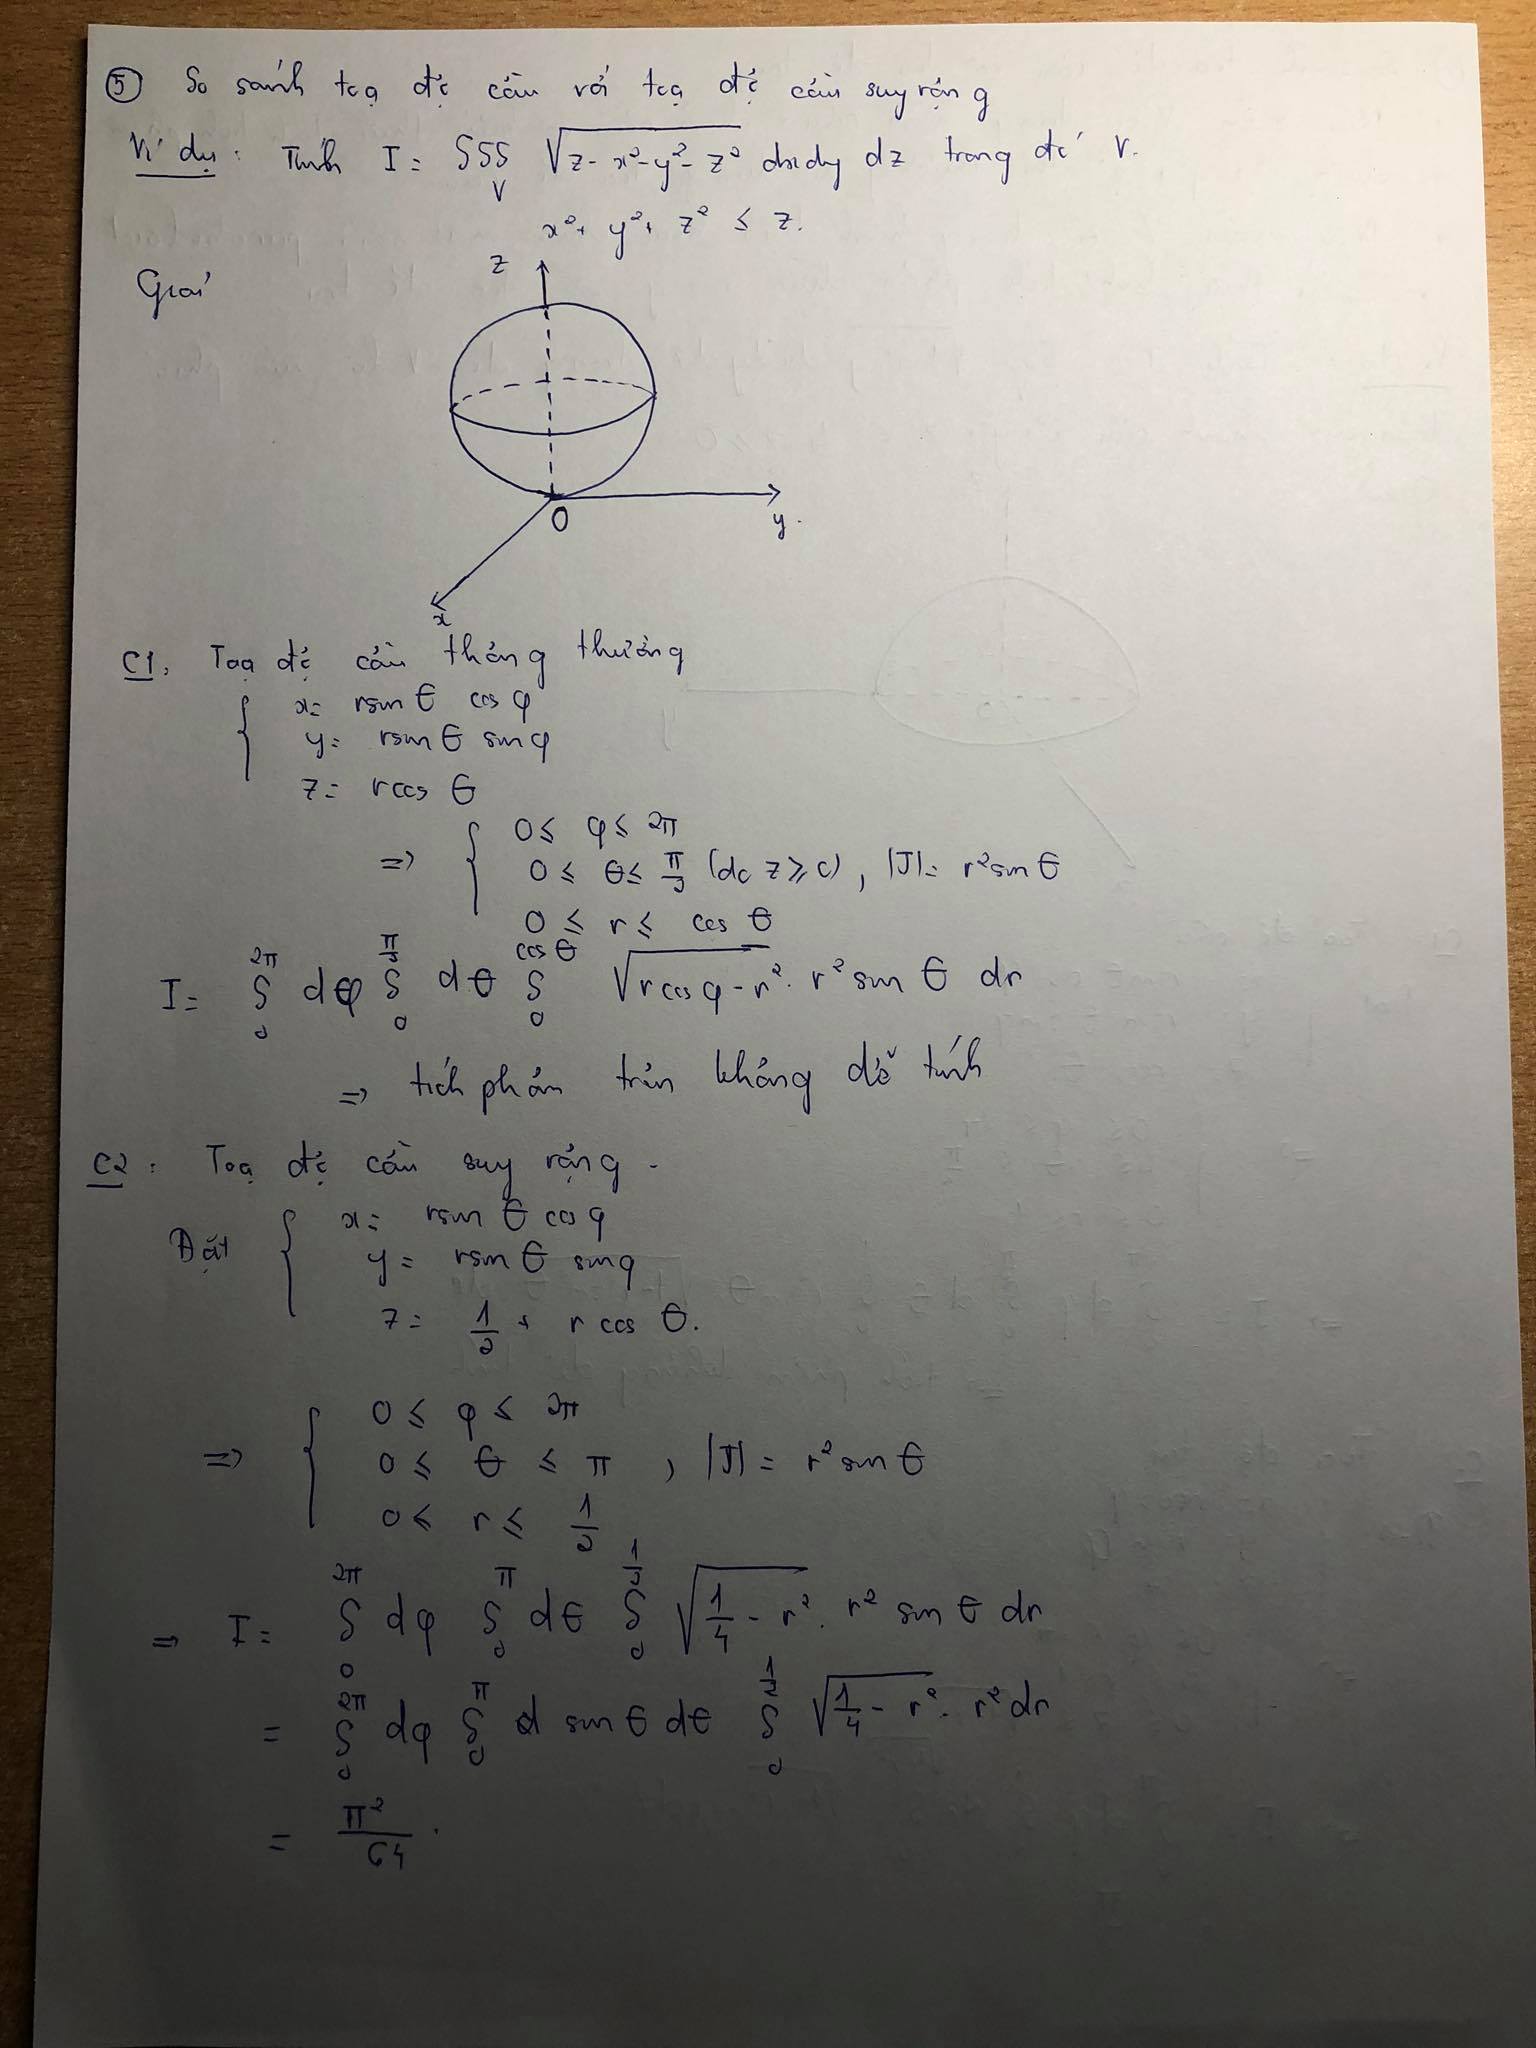 ⑤ So sánh toạ độ cầu với toạ độ cầu suy rộng
Ví dụ: Tính I = ∫∫∫_V √(z - x² - y² - z²) dxdy dz trong đó V.
x² + y² + z² ≤ z.
Giải
z
O
y.
x
C1. Toạ độ cầu thông thường
{ x = rsin θ cos φ
y = rsin θ sin φ
z = rcos θ
=> { 0 ≤ φ ≤ 2π
0 ≤ θ ≤ π/2 (do z ≥ 0), |J| = r² sin θ
0 ≤ r ≤ cos θ
I = ∫₀^{2π} dφ ∫₀^{π/2} dθ ∫₀^{cos θ} √(rcos φ - r²) . r² sin θ dr
=> tích phân trên không dễ tính
C2: Toạ độ cầu suy rộng.
Đặt { x = rsin θ cos φ
y = rsin θ sin φ
z = 1/2 + r cos θ.
=> { 0 ≤ φ ≤ 2π
0 ≤ θ ≤ π, |J| = r² sin θ
0 ≤ r ≤ 1/2
=> I = ∫₀^{2π} dφ ∫₀^π dθ ∫₀^{1/2} √(1/4 - r²) . r² sin θ dr
= ∫₀^{2π} dφ ∫₀^π sin θ dθ ∫₀^{1/2} √(1/4 - r²) . r² dr
= π²/64.